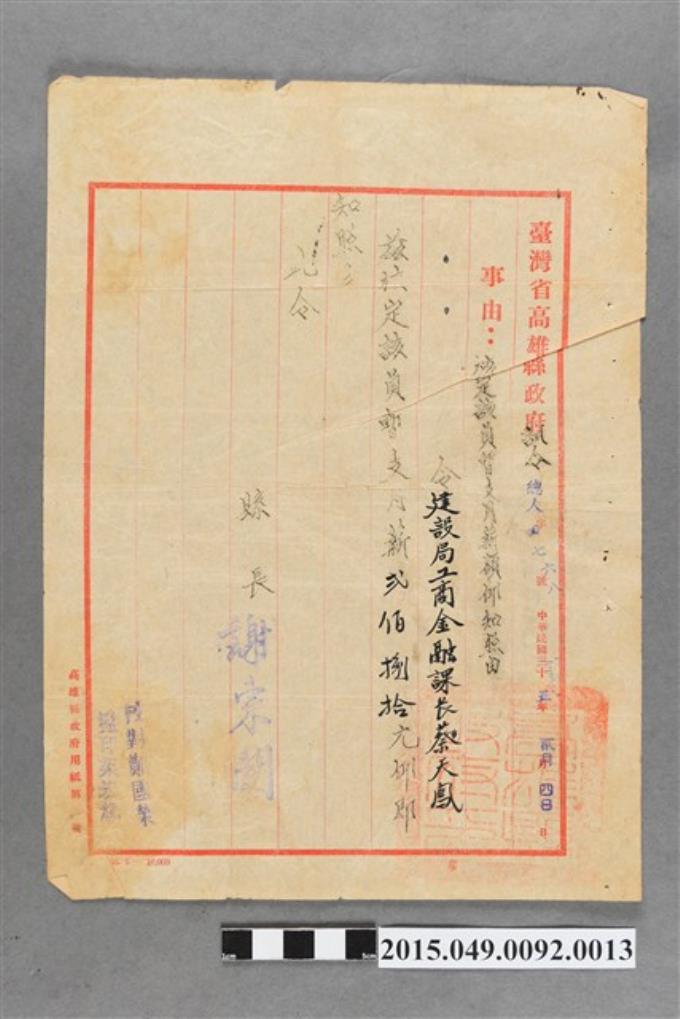 臺灣省高雄縣政府訓令
總人字七六八號
中華民國三十五年貳月四日
事由：核定該員暫支月薪額仰知照由
令建設局工商金融課長蔡天鳳
茲核定該員暫支月薪弐佰捌拾元仰即
知照
此令
縣長謝東閔
校對鄭國榮
高雄縣政府用紙第號
10,000
1cm
5cm
2015.049.0092.0013